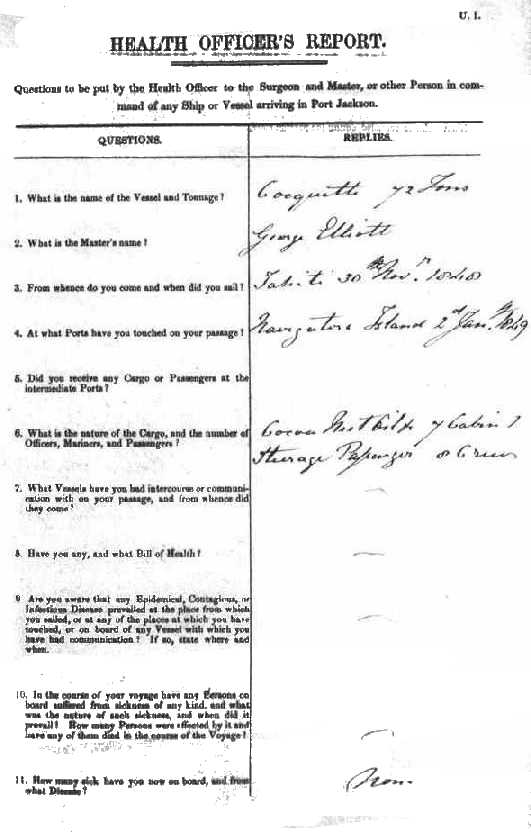 U. 1.
HEALTH OFFICER'S REPORT.
Questions to be put by the Health Officer to the Surgeon and Master, or other Person in com-
mand of any Ship or Vessel arriving in Port Jackson.
QUESTIONS.
REPLIES.
1. What is the name of the Vessel and Tonnage?
Cocquette 72 Tons
2. What is the Master's name?
George Elliott
3. From whence do you come and when did you sail?
Tahiti 30th Novr. 1848
4. At what Ports have you touched on your passage?
Navigators Island 2d Jany. 1849
5. Did you receive any Cargo or Passengers at the
intermediate Ports?
6. What is the nature of the Cargo, and the number of
Officers, Mariners, and Passengers?
Cocoa Nut Oil & 7 Cabin 1
Steerage Passenger 8 Crew
7. What Vessels have you had intercourse or communi-
cation with on your passage, and from whence did
they come?
8. Have you any, and what Bill of Health?
9. Are you aware that any Epidemical, Contagious, or
Infectious Disease prevailed at the place from which
you sailed, or at any of the places at which you have
touched, or on board of any Vessel with which you
have had communication? If so, state where and
when.
10. In the course of your voyage have any Persons on
board suffered from sickness of any kind, and what
was the nature of such sickness, and when did it
prevail? How many Persons were affected by it and
have any of them died in the course of the Voyage?
11. How many sick have you now on board, and from
what Disease?
None